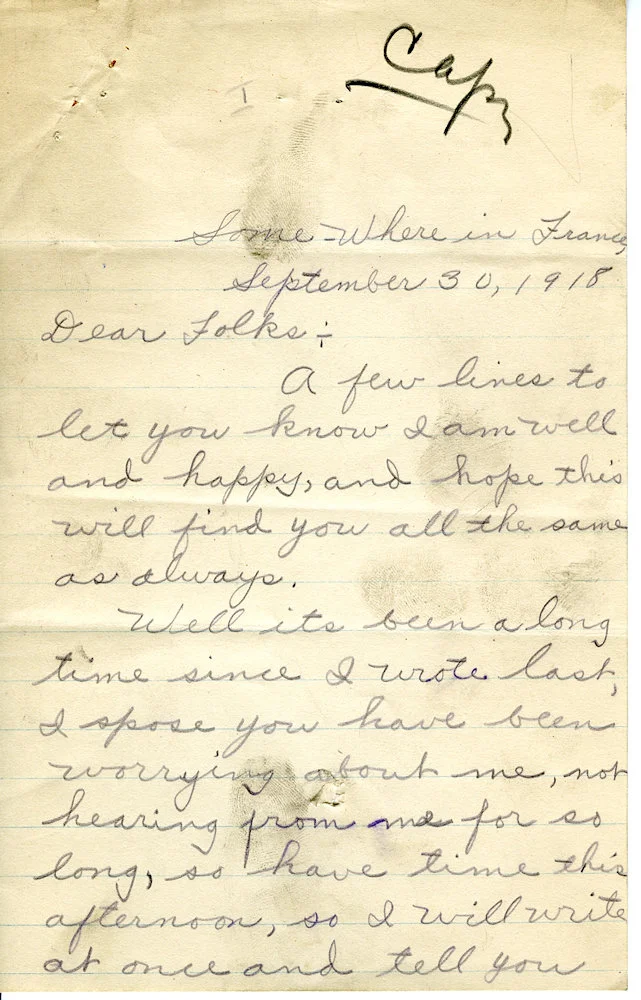 Copy
I
Some-Where in France,
September 30, 1918
Dear Folks:-
A few lines to
let you know I am well
and happy, and hope this
will find you all the same
as always.
Well its been a long
time since I wrote last,
I spose you have been
worrying about me, not
hearing from me for so
long, so have time this
afternoon, so I will write
at once and tell you